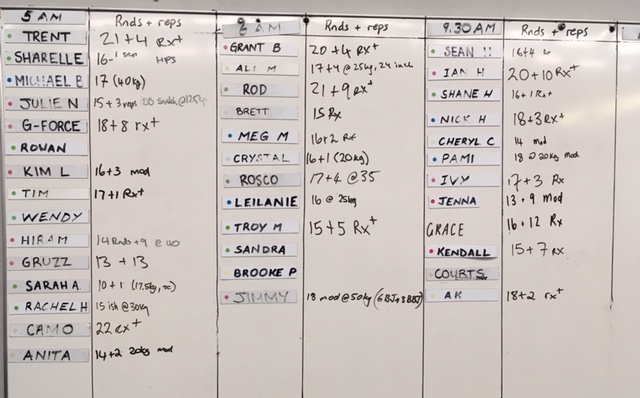 5 AM Rnds + reps
TRENT 21+4 Rx+
SHARELLE 16- HPS
MICHAEL B 17 (40kg)
JULIE N 15+3 reps DB
G-FORCE 18+8 rx+
ROWAN
KIM L 16+3 mod
TIM 17+1 Rx+
WENDY
HIRAM 14 Rnds +9 @ 40
GRUZZ 13 + 13
SARAH A 10+1 (17.5kg,
RACHEL H 15 ish @30kg
CAMO 22 rx+
ANITA 14+2 20kg mod
6 AM Rnds + reps
GRANT B 20+4 Rx+
ALI M 17+4 @25kg, 24 inch
ROD 21+9 rx+
BRETT 15 Rx
MEG M 16+2 Rx
CRYSTAL 16+1 (20kg)
ROSCO 17+4 @35
LEILANIE 16 @ 25kg
TROY M 15+5 Rx+
SANDRA
BROOKE P
JIMMY 18 mod @50kg (6BJ+3BBJ)
9.30 AM Rnds + reps
SEAN 16+4
IAN H 20+10 Rx+
SHANE H 16+1 Rx+
NICK H 18+3 Rx+
CHERYL C 14 mod
PAMI 18 @ 20kg mod
IVY 17+3 Rx
JENNA 13+9 Mod
GRACE 16+12 Rx
KENDALL 15+7 rx
COURTS
AK 18+2 rx+